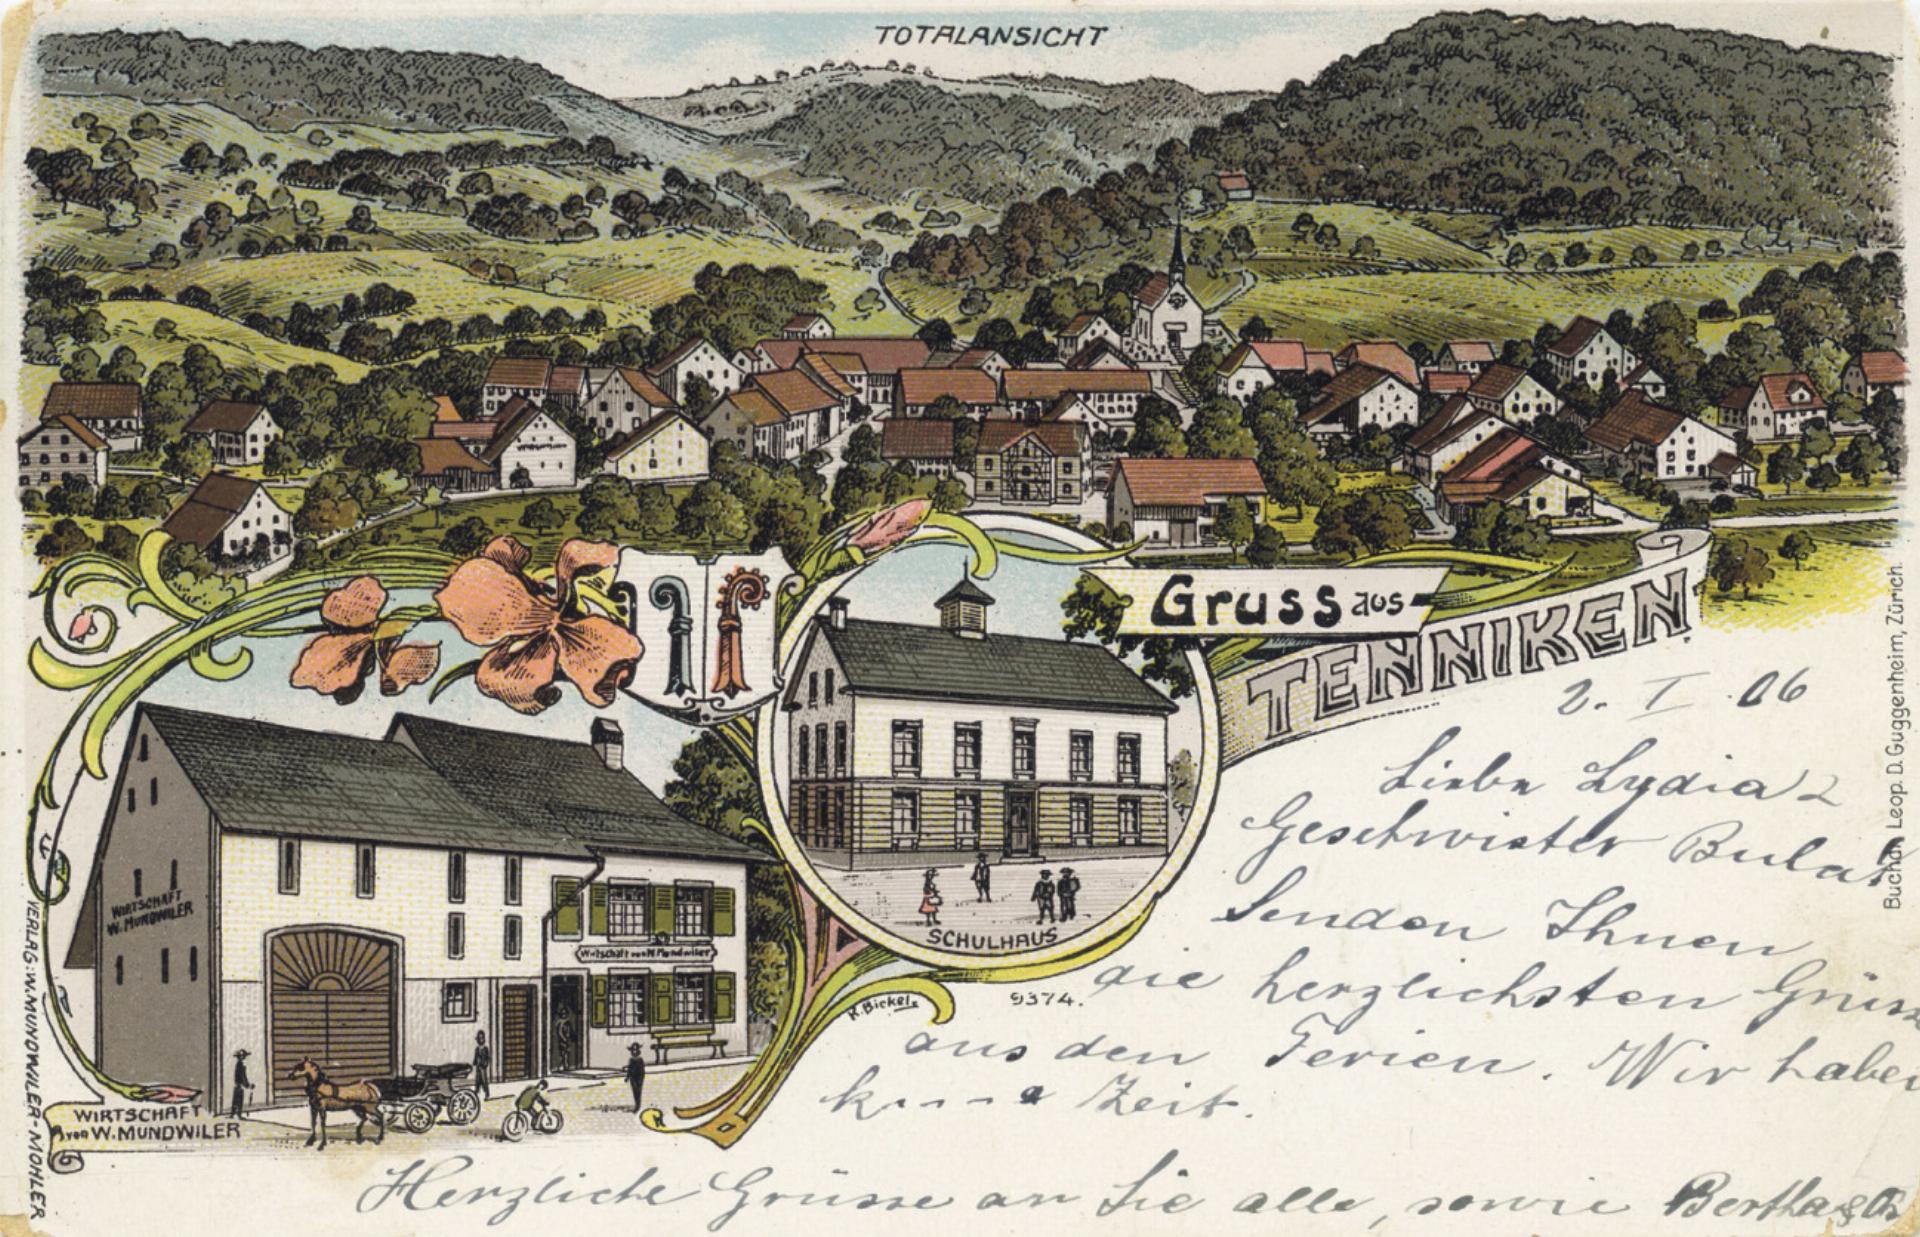 TOTALANSICHT
Gruss aus
TENNIKEN
2. I. 06
Liebe Lydia
Geschwister
Senden Ihnen
die herzlichsten Grüsse
aus den Ferien. Wir haben
Zeit.
Herzliche Grüsse an Sie alle, sowie Bertha &
SCHULHAUS
9374.
R. Bickel
WIRTSCHAFT
W. MUNDWILER
Wirtschaft von W. Mundwiler
WIRTSCHAFT
von W. MUNDWILER
VERLAG: W. MUNDWILER-MOHLER
Buchdr. Leop. D. Guggenheim, Zürich.